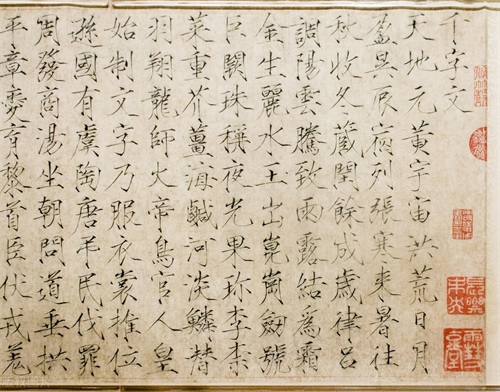 千字文
天地元黃宇宙洪荒日月
盈昃辰宿列張寒來暑往
秋收冬藏閏餘成歲律呂
調陽雲騰致雨露結為霜
金生麗水玉出崑崗劍號
巨闕珠稱夜光果珍李柰
菜重芥薑海鹹河淡鱗替
羽翔龍師火帝鳥官人皇
始制文字乃服衣裳推位
遜國有虞陶唐弔民伐罪
周發商湯坐朝問道垂拱
平章愛育黎首臣伏戎羌